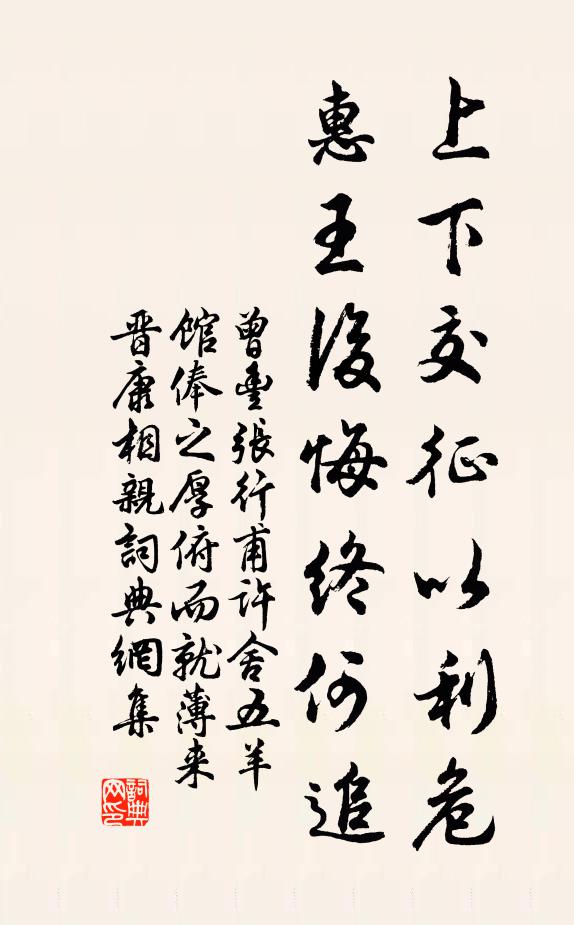 上下交征以利危
惠王後悔終何追
曾豐張行甫許舍五羊
館俸之厚俯而就薄来
晋康相親詞典網集
詞典網印